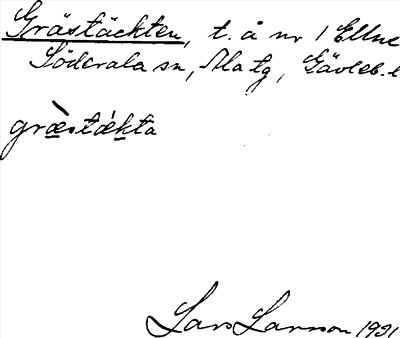 Grästäckten, t. å nr 1 Ellne
Söderala sn, Ala tg, Gävleb. l
græ̀stǽkta
Lars Larsson 1931